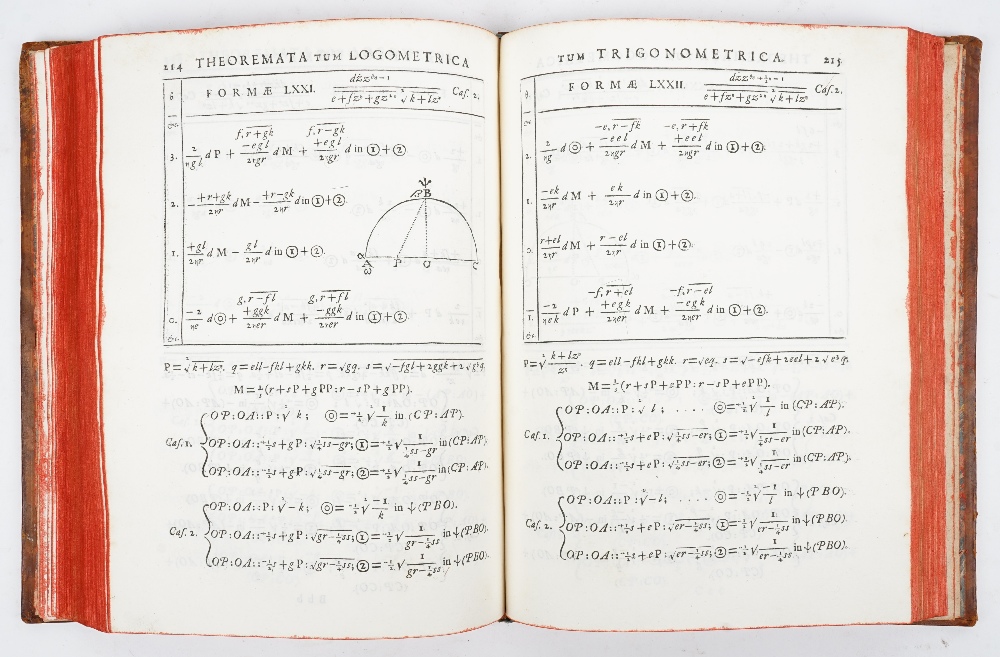 214 THEOREMATA TUM LOGOMETRICA
θ. FORMÆ LXXI. dżz^{θη−1} / e+fz^η+gz^{2η} √k+lz^η Cas. 2.
&c.
f,r+gk f,r−gk
3. 2/ηgl dP + −egl/2ηgr dM + +egl/2ηgr d in ①+②
2. −+r+gk/2ηr dM− +r−gk/2ηr d in ①+②.
1. +gl/2ηr dM − gl/2ηr d in ①+②.
g,r−fl g,r+fl
0. −2/ηe d◎ + +ggk/2ηer dM + −ggk/2ηer d in ①+②.
&c.
ψ
P B
α A P O C
ω
P=√k+lz^η. q=ell−fkl+gkk. r=√gq. s=√−fgl+2ggk+2√g³q.
M=2/s(r+sP+gPP:r−sP+gPP).
Cas. 1.
OP:OA::P:√k; ◎=+½√1/k in (CP:AP).
OP:OA::+½s+gP:√¼ss−gr; ①=+½√1/¼ss−gr in (CP:AP).
OP:OA::−½s+gP:√¼ss−gr; ②=+½√1/¼ss−gr in (CP:AP).
Cas. 2.
OP:OA::P:√−k; ◎=−½√−1/k in ψ(PBO).
OP:OA::+½s+gP:√gr−¼ss; ①=−½√1/gr−¼ss in ψ(PBO).
OP:OA::−½s+gP:√gr−¼ss; ②=−½√1/gr−¼ss in ψ(PBO).
TUM TRIGONOMETRICA. 215
θ. FORMÆ LXXII. dżz^{θη+½η−1} / e+fz^η+gz^{2η} √k+lz^η Cas. 2.
&c.
−e,r−fk −e,r+fk
2. 2/ηg d◎ + −eel/2ηgr dM + +eel/2ηgr d in ①+②.
1. −ek/2ηr dM + ek/2ηr d in ①+②.
0. r+el/2ηr dM + r−el/2ηr d in ①+②.
−f,r+el −f,r−el
1. −2/ηek dP + +egk/2ηer dM + −egk/2ηer d in ①+②.
&c.
P=√k+lz^η/z^η. q=ell−fkl+gkk. r=√eq. s=√−efk+2eel+2√e³q.
M=2/s(r+sP+ePP:r−sP+ePP).
Cas. 1.
OP:OA::P:√l; .... ◎=+½√1/l in (CP:AP).
OP:OA::+½s+eP:√¼ss−er; ①=+½√1/¼ss−er in (CP:AP).
OP:OA::−½s+eP:√¼ss−er; ②=+½√1/¼ss−er in (CP:AP).
Cas. 2.
OP:OA::P:√−l; .... ◎=−½√−1/l in ψ(PBO).
OP:OA::+½s+eP:√er−¼ss; ①=−½√1/er−¼ss in ψ(PBO).
OP:OA::−½s+eP:√er−¼ss; ②=−½√1/er−¼ss in ψ(PBO).